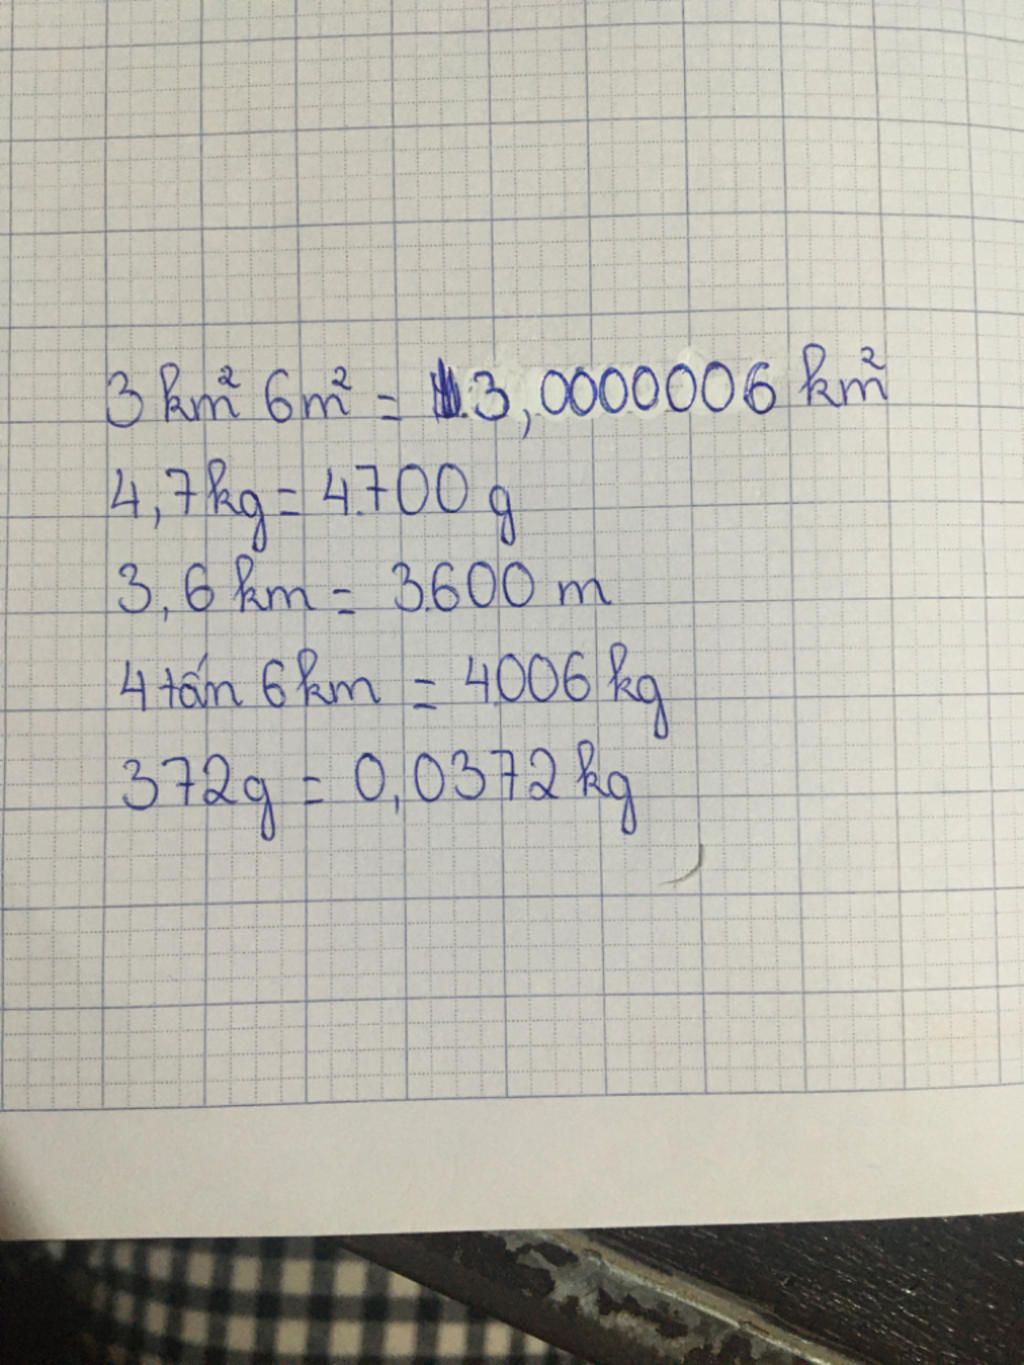 3 km² 6m² = 3,0000006 km²
4,7kg = 4.700 g
3,6 km = 3.600 m
4 tấn 6 km = 4.006 kg
372g = 0,0372 kg